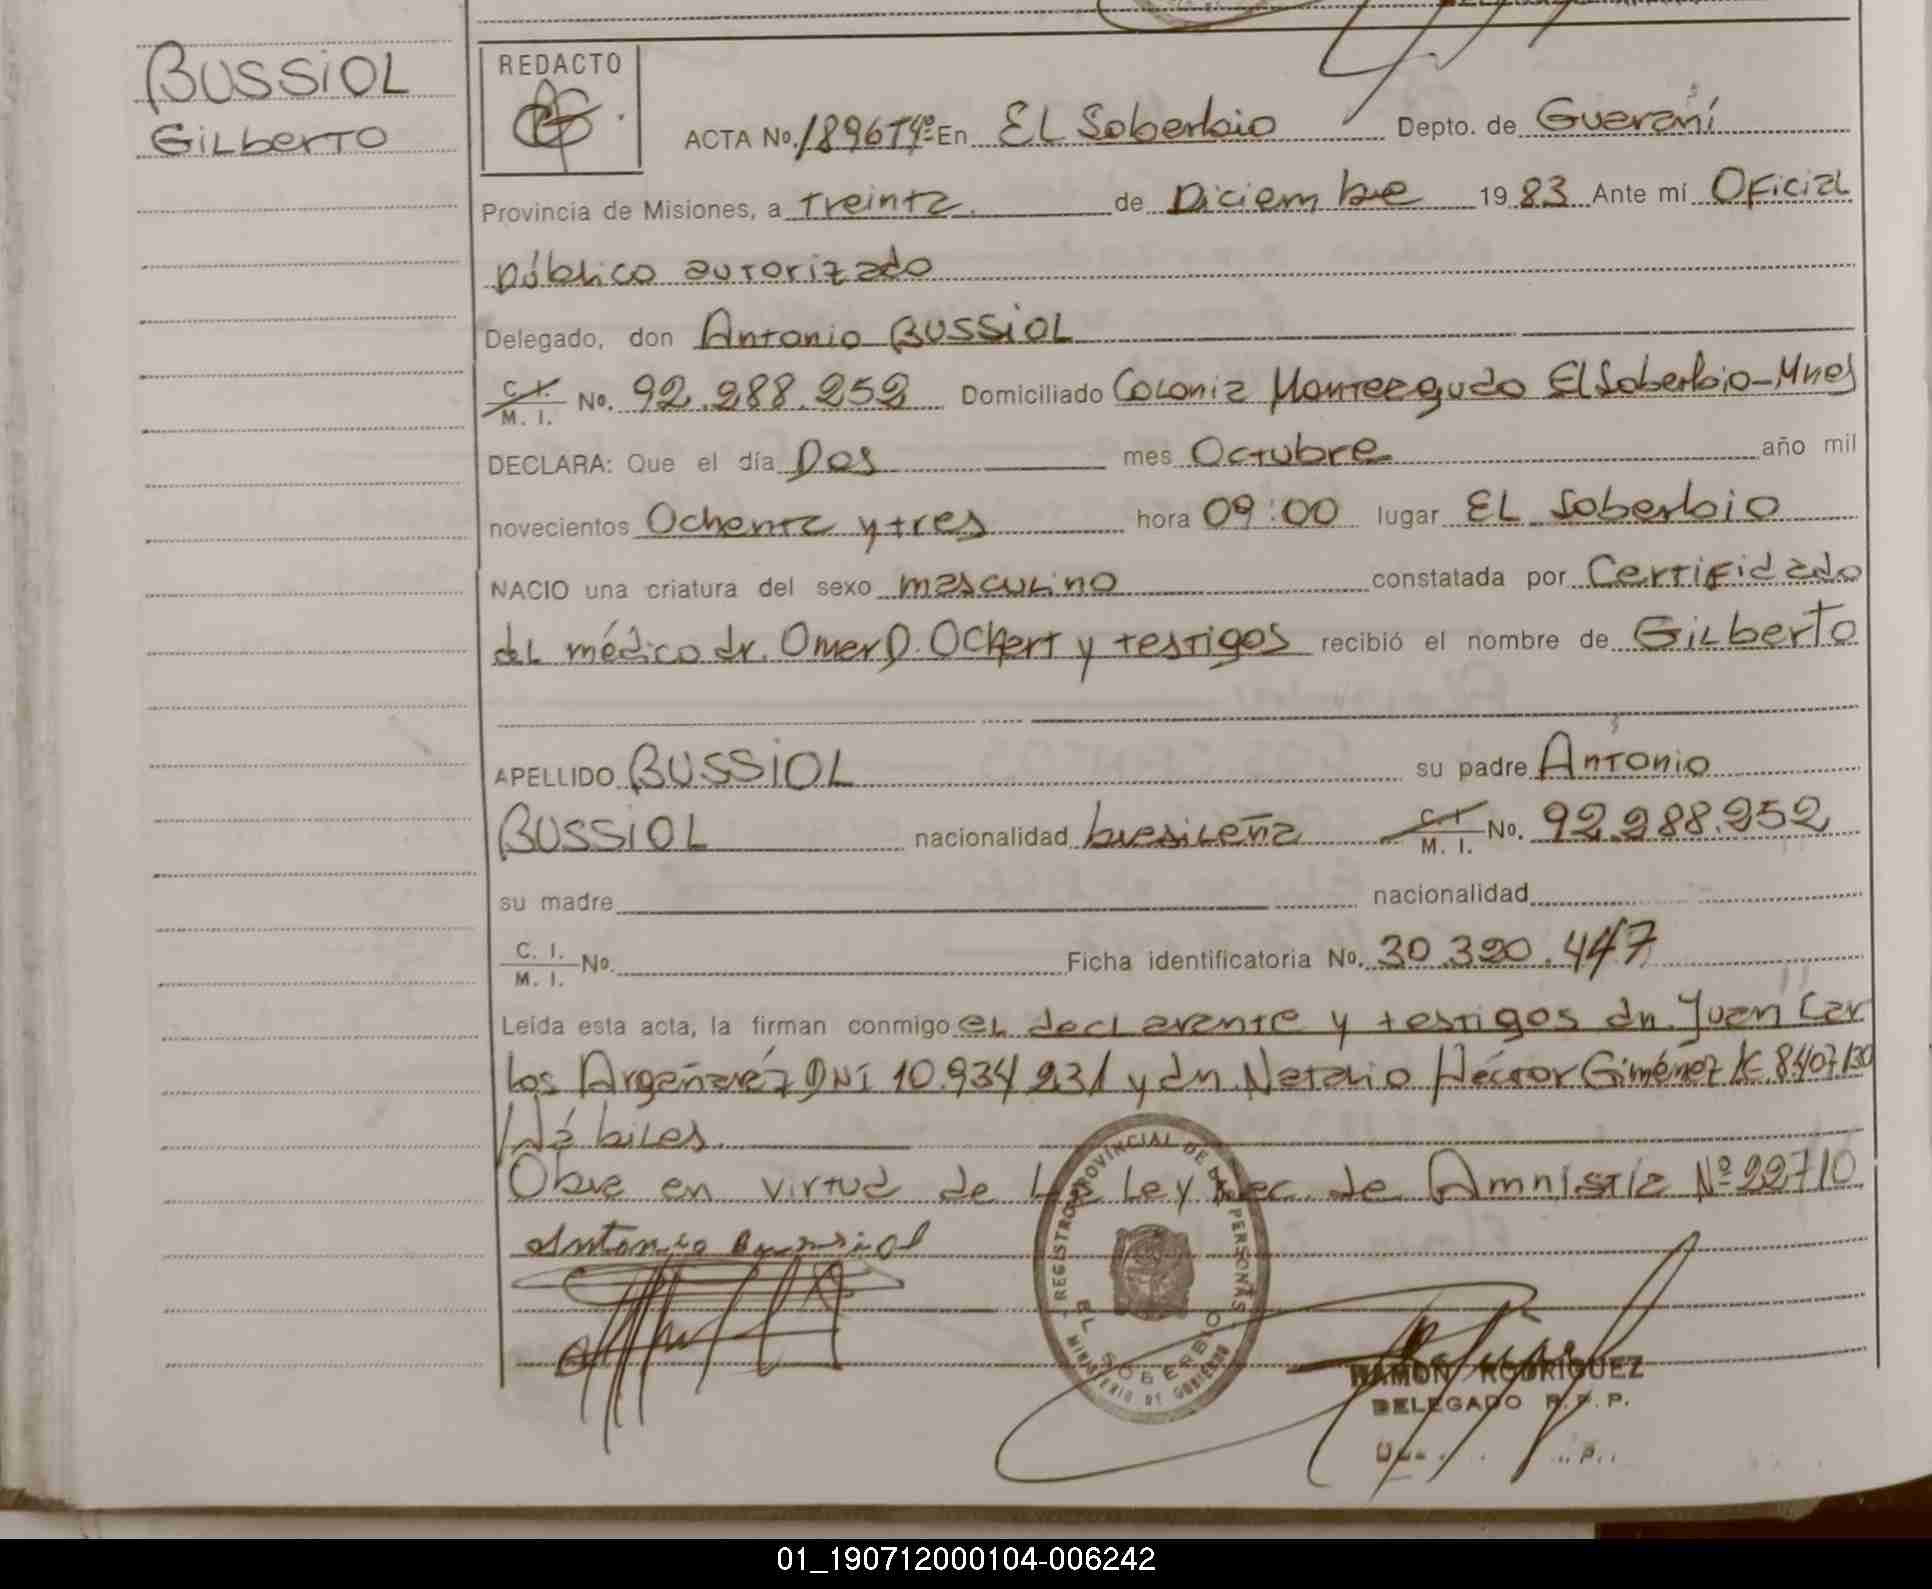 BUSSIOL
GILBERTO
REDACTO
ACTA No. 1896 Tº4º- En EL Soberbio Depto. de Guaraní
Provincia de Misiones, a Treinta de Diciembre 1983 Ante mí Oficial
público autorizado
Delegado, don Antonio BUSSIOL
C. I. / M. I. No. 92.288.252 Domiciliado Colonia Monteagudo El Soberbio-Mnes
DECLARA: Que el día Dos mes Octubre año mil
novecientos Ochenta y tres hora 09:00 lugar EL Soberbio
NACIO una criatura del sexo masculino constatada por Certifidado
del médico dr. Omer D. Ochert y testigos recibió el nombre de GILberto
APELLIDO BUSSIOL su padre Antonio
BUSSIOL nacionalidad brasileña C. I. / M. I. No. 92.288.252
su madre nacionalidad
C. I. / M. I. No. Ficha identificatoria No. 30.320.447
Leída esta acta, la firman conmigo el declarante y testigos dn. Juan Car
los Argañaréz DNI 10.934 231 y dn. Natalio Héctor Giménez LE 8.407.130
Hábiles.
Obre en virtud de La Ley Nac. de Amnistía Nº 22710
Antonio Bussiol
REGISTRO PROVINCIAL DE LAS PERSONAS
EL SOBERBIO
MINISTERIO DE GOBIERNO
RAMON RODRIGUEZ
DELEGADO R. P. P.
01_190712000104-006242